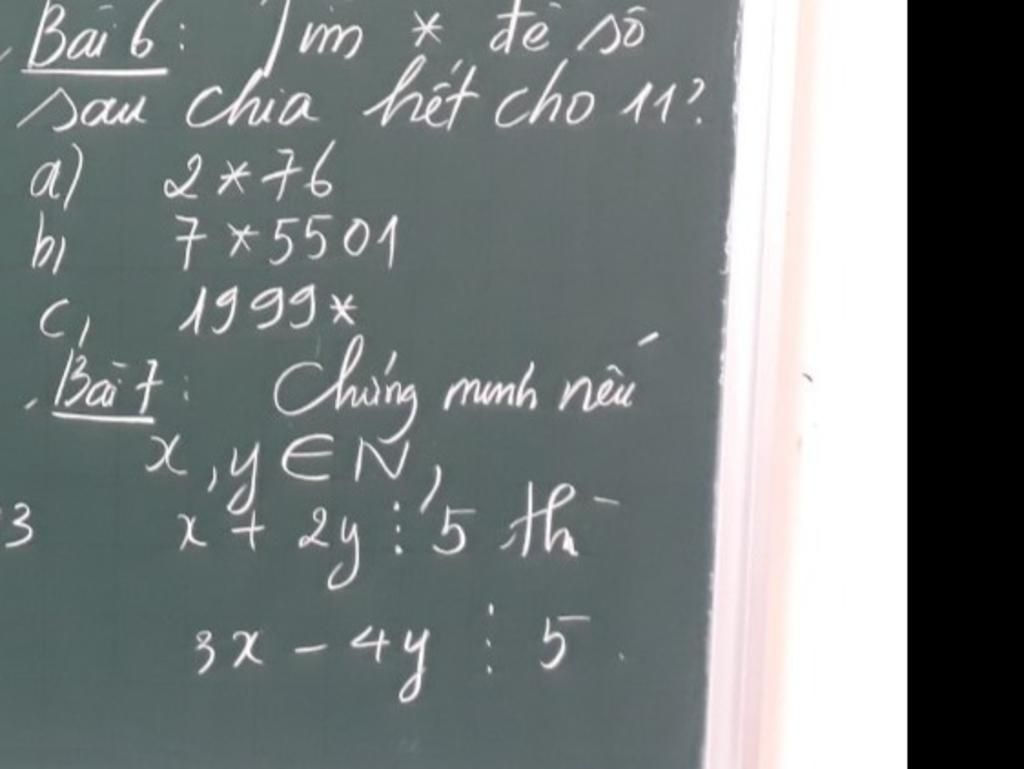 Bài 6: Tìm * để số
sau chia hết cho 11?
a) 2*76
b, 7*5501
c, 1999*
Bài 7: Chứng minh nếu
x, y ∈ N,
3 x + 2y ⋮ 5 thì
3x - 4y ⋮ 5.